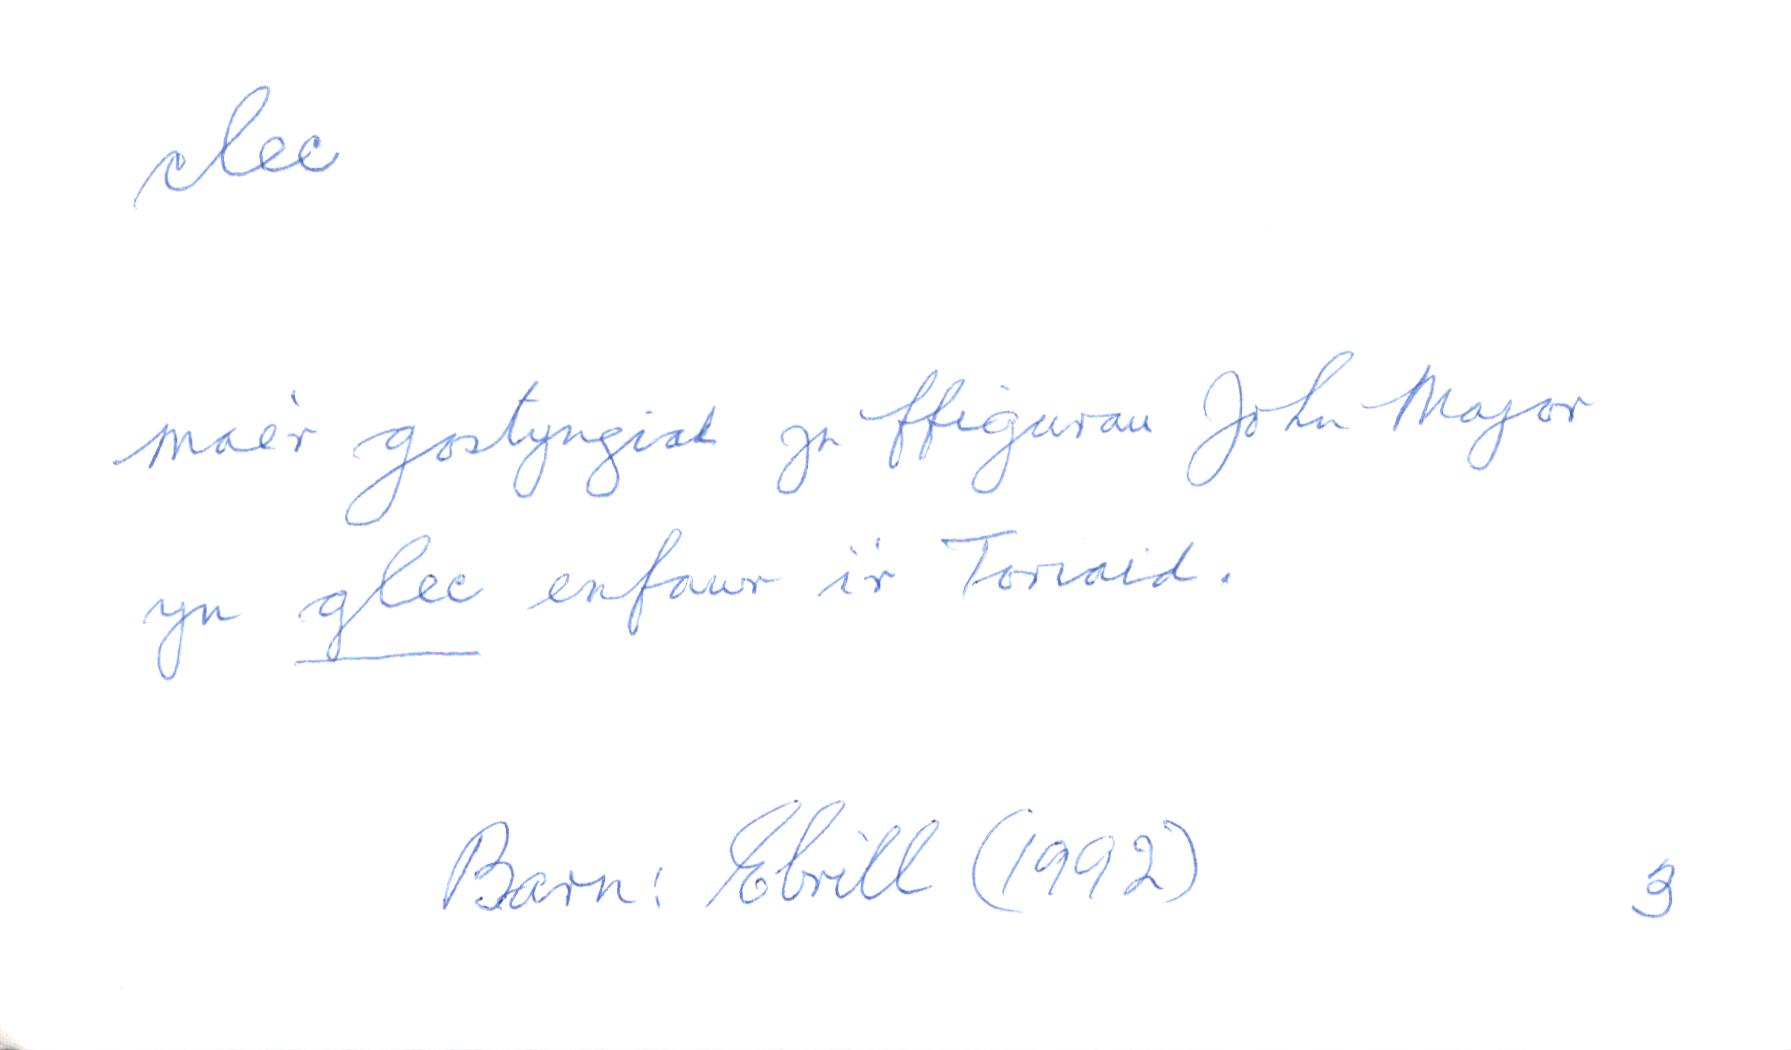 clec
mae'r gostyngiad yn ffigurau John Major
yn glec enfawr i'r Torïaid.
Barn: Ebrill (1992) 3